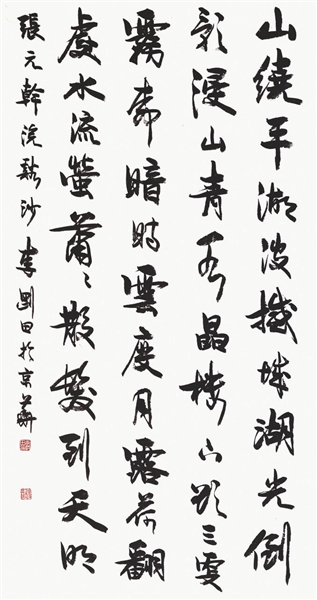 山繞平湖波撼城湖光倒
影浸山青水晶樓下欲三更
霧柳暗時雲度月露荷翻
處水流螢蕭〻散髮到天明
張元幹浣谿沙 李剛田於京華